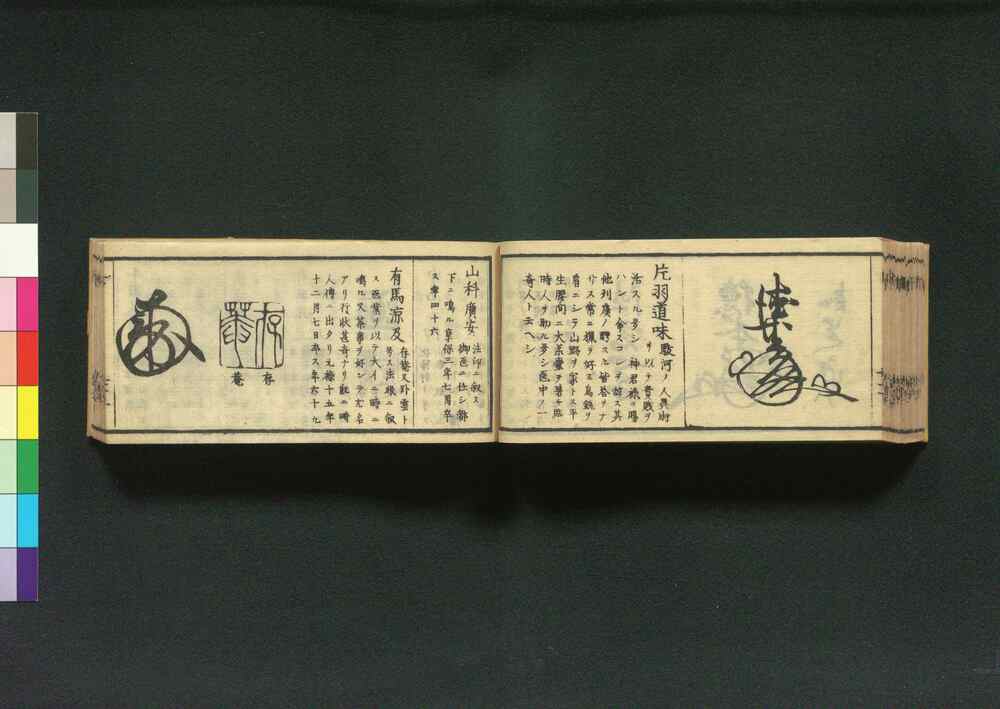 片羽道味 駿河ノ人異術
アリ以テ貴賤ヲ
活スル多シ 神君祿ヲ賜
ハントイヘドモコレヲ辞ス其
他列矦ノ聘スル皆答ヲナ
サス常ニ猟ヲ好ミ鳥銃ヲ
肩ニシテ山野ヲ家トス平
生腰間ニ大薬嚢ヲ著ケ臨
時人ヲ助ル多シ医中ノ一
奇人ト云ヘシ
山科廣安 法印ニ叙ス
御医ニ仕シ都
下ニ鳴ル享保三年七月卒
ス年四十六
有馬涼及 存菴又卧雲ト
号ス法橋ニ叙
ス医業ヲ以テ大イニ時ニ
鳴ル又茶事ヲ好ンテ尤名
アリ行状甚奇ナリ
人傳ニ出タリ元禄十五年
十二月七日卒ス年六十九
存菴
存
菴